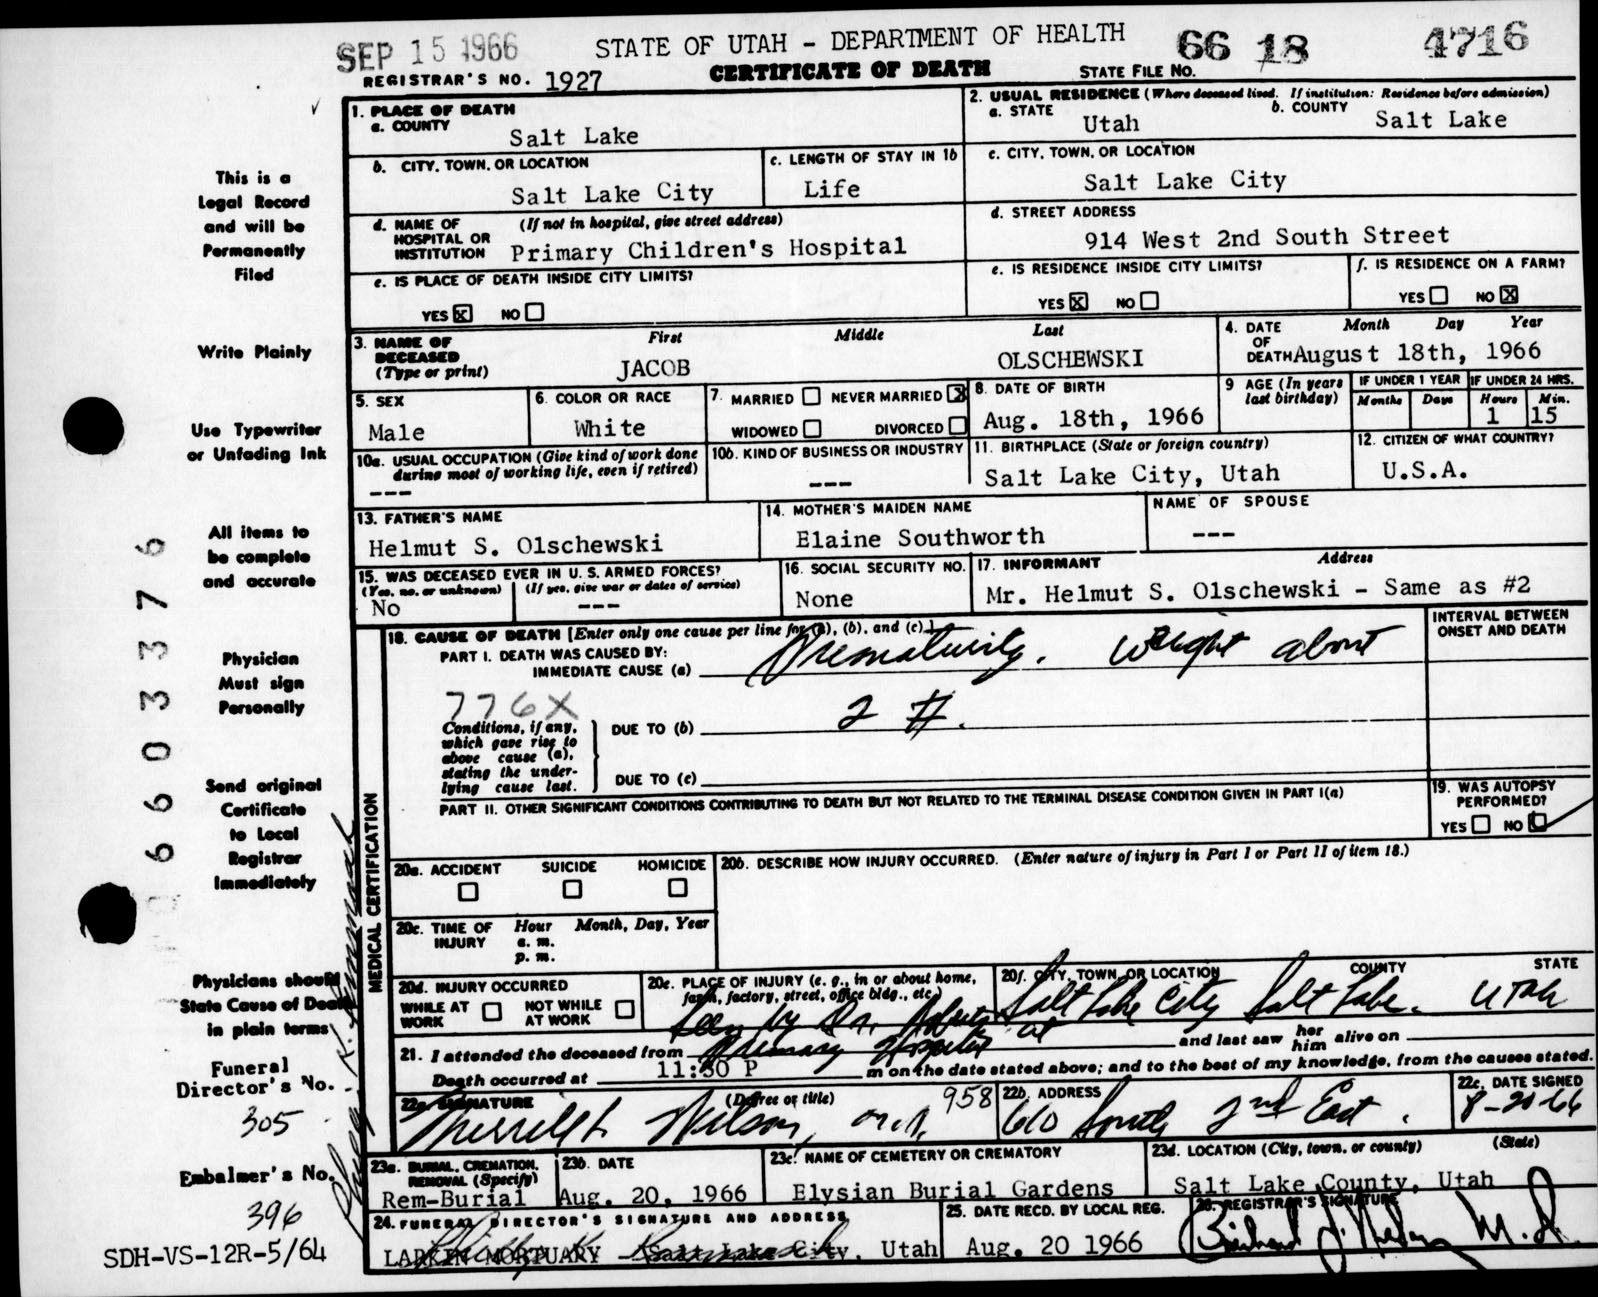 SEP 15 1966
STATE OF UTAH - DEPARTMENT OF HEALTH
66 18 4716
REGISTRAR'S NO. 1927
CERTIFICATE OF DEATH
STATE FILE NO.
This is a
Legal Record
and will be
Permanently
Filed
Write Plainly
Use Typewriter
or Unfading Ink
All items to
be complete
and accurate
Physician
Must sign
Personally
Send original
Certificate
to Local
Registrar
Immediately
Physicians should
State Cause of Death
in plain terms
Funeral
Director's No.
305
Embalmer's No.
396
SDH-VS-12R-5/64
6603376
1. PLACE OF DEATH
a. COUNTY
Salt Lake
2. USUAL RESIDENCE (Where deceased lived. If institution: Residence before admission)
a. STATE
Utah
b. COUNTY
Salt Lake
b. CITY, TOWN, OR LOCATION
Salt Lake City
c. LENGTH OF STAY IN 1b
Life
c. CITY, TOWN, OR LOCATION
Salt Lake City
d. NAME OF HOSPITAL OR INSTITUTION
(If not in hospital, give street address)
Primary Children's Hospital
d. STREET ADDRESS
914 West 2nd South Street
e. IS PLACE OF DEATH INSIDE CITY LIMITS?
YES X NO
e. IS RESIDENCE INSIDE CITY LIMITS?
YES X NO
f. IS RESIDENCE ON A FARM?
YES NO X
3. NAME OF DECEASED
(Type or print)
First Middle Last
JACOB OLSCHEWSKI
4. DATE OF DEATH
Month Day Year
August 18th, 1966
5. SEX
Male
6. COLOR OR RACE
White
7. MARRIED NEVER MARRIED X
WIDOWED DIVORCED
8. DATE OF BIRTH
Aug. 18th, 1966
9 AGE (In years last birthday)
IF UNDER 1 YEAR
Months Days
IF UNDER 24 HRS.
Hours Min.
1 15
10a. USUAL OCCUPATION (Give kind of work done during most of working life, even if retired)
---
10b. KIND OF BUSINESS OR INDUSTRY
---
11. BIRTHPLACE (State or foreign country)
Salt Lake City, Utah
12. CITIZEN OF WHAT COUNTRY?
U.S.A.
13. FATHER'S NAME
Helmut S. Olschewski
14. MOTHER'S MAIDEN NAME
Elaine Southworth
NAME OF SPOUSE
---
15. WAS DECEASED EVER IN U. S. ARMED FORCES?
(Yes, no, or unknown) (If yes, give war or dates of service)
No ---
16. SOCIAL SECURITY NO.
None
17. INFORMANT Address
Mr. Helmut S. Olschewski - Same as #2
MEDICAL CERTIFICATION
18. CAUSE OF DEATH [Enter only one cause per line for (a), (b), and (c).]
PART I. DEATH WAS CAUSED BY:
IMMEDIATE CAUSE (a) Prematurity. Weight about
776X
2 #.
Conditions, if any, which gave rise to above cause (a), stating the underlying cause last.
DUE TO (b)
DUE TO (c)
INTERVAL BETWEEN ONSET AND DEATH
PART II. OTHER SIGNIFICANT CONDITIONS CONTRIBUTING TO DEATH BUT NOT RELATED TO THE TERMINAL DISEASE CONDITION GIVEN IN PART I(a)
19. WAS AUTOPSY PERFORMED?
YES NO
20a. ACCIDENT SUICIDE HOMICIDE
20b. DESCRIBE HOW INJURY OCCURRED. (Enter nature of injury in Part I or Part II of item 18.)
20c. TIME OF INJURY
Hour Month, Day, Year
a. m.
p. m.
20d. INJURY OCCURRED
WHILE AT WORK NOT WHILE AT WORK
20e. PLACE OF INJURY (e. g., in or about home, farm, factory, street, office bldg., etc.)
20f. CITY, TOWN, OR LOCATION COUNTY STATE
Salt Lake City Salt Lake. Utah
Seen by Dr. at
Primary Hospital
21. I attended the deceased from and last saw her him alive on
Death occurred at 11:30 P m on the date stated above; and to the best of my knowledge, from the causes stated.
22a. SIGNATURE (Degree or title)
Merrill L Wilson, M.D. 958
22b. ADDRESS
610 South 2nd East.
22c. DATE SIGNED
8-20-66
23a. BURIAL, CREMATION, REMOVAL (Specify)
Rem-Burial
23b. DATE
Aug. 20, 1966
23c. NAME OF CEMETERY OR CREMATORY
Elysian Burial Gardens
23d. LOCATION (City, town, or county) (State)
Salt Lake County, Utah
24. FUNERAL DIRECTOR'S SIGNATURE AND ADDRESS
LARKIN MORTUARY - Salt Lake City, Utah
25. DATE RECD. BY LOCAL REG.
Aug. 20 1966
26. REGISTRAR'S SIGNATURE
M.D.